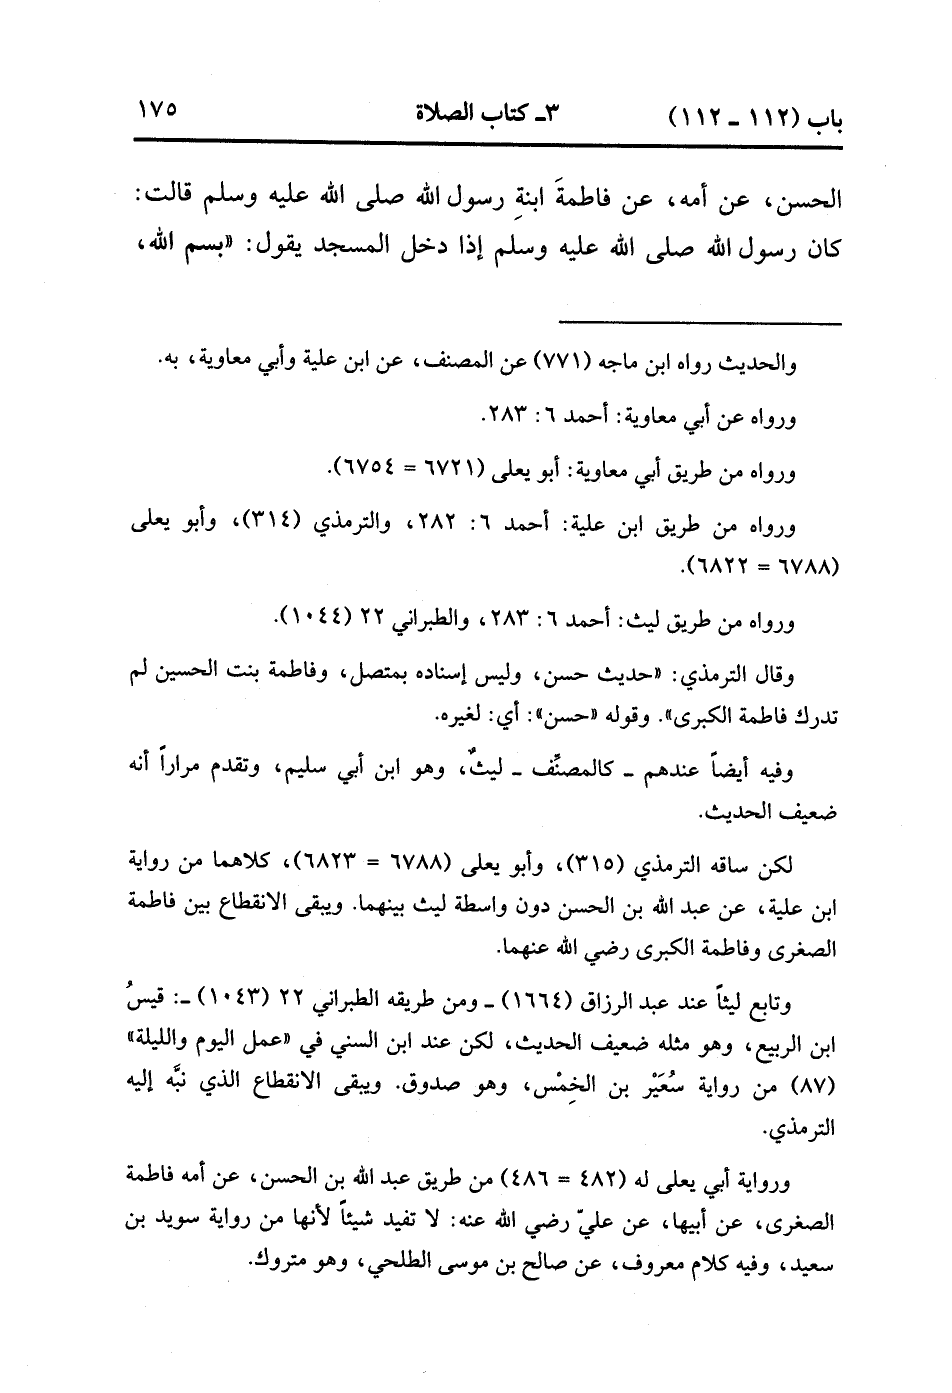 باب (١١٢ ـ ١١٢) ٣ـ كتاب الصلاة ١٧٥
الحسن، عن أمه، عن فاطمةَ ابنةِ رسول الله صلى الله عليه وسلم قالت:
كان رسول الله صلى الله عليه وسلم إذا دخل المسجد يقول: «بسم الله،
والحديث رواه ابن ماجه (٧٧١) عن المصنف، عن ابن علية وأبي معاوية، به.
ورواه عن أبي معاوية: أحمد ٦: ٢٨٣.
ورواه من طريق أبي معاوية: أبو يعلى (٦٧٢١ = ٦٧٥٤).
ورواه من طريق ابن علية: أحمد ٦: ٢٨٢، والترمذي (٣١٤)، وأبو يعلى
(٦٧٨٨ = ٦٨٢٢).
ورواه من طريق ليث: أحمد ٦: ٢٨٣، والطبراني ٢٢ (١٠٤٤).
وقال الترمذي: «حديث حسن، وليس إسناده بمتصل، وفاطمة بنت الحسين لم
تدرك فاطمة الكبرى». وقوله «حسن»: أي: لغيره.
وفيه أيضاً عندهم ـ كالمصنِّف ـ ليثٌ، وهو ابن أبي سليم، وتقدم مراراً أنه
ضعيف الحديث.
لكن ساقه الترمذي (٣١٥)، وأبو يعلى (٦٧٨٨ = ٦٨٢٣)، كلاهما من رواية
ابن علية، عن عبد الله بن الحسن دون واسطة ليث بينهما. ويبقى الانقطاع بين فاطمة
الصغرى وفاطمة الكبرى رضي الله عنهما.
وتابع ليثاً عند عبد الرزاق (١٦٦٤) ـ ومن طريقه الطبراني ٢٢ (١٠٤٣) ـ: قيسُ
ابن الربيع، وهو مثله ضعيف الحديث، لكن عند ابن السني في «عمل اليوم والليلة»
(٨٧) من رواية سُعَيْر بن الخِمْس، وهو صدوق. ويبقى الانقطاع الذي نبَّه إليه
الترمذي.
ورواية أبي يعلى له (٤٨٢ = ٤٨٦) من طريق عبد الله بن الحسن، عن أمه فاطمة
الصغرى، عن أبيها، عن عليّ رضي الله عنه: لا تفيد شيئاً لأنها من رواية سويد بن
سعيد، وفيه كلام معروف، عن صالح بن موسى الطلحي، وهو متروك.